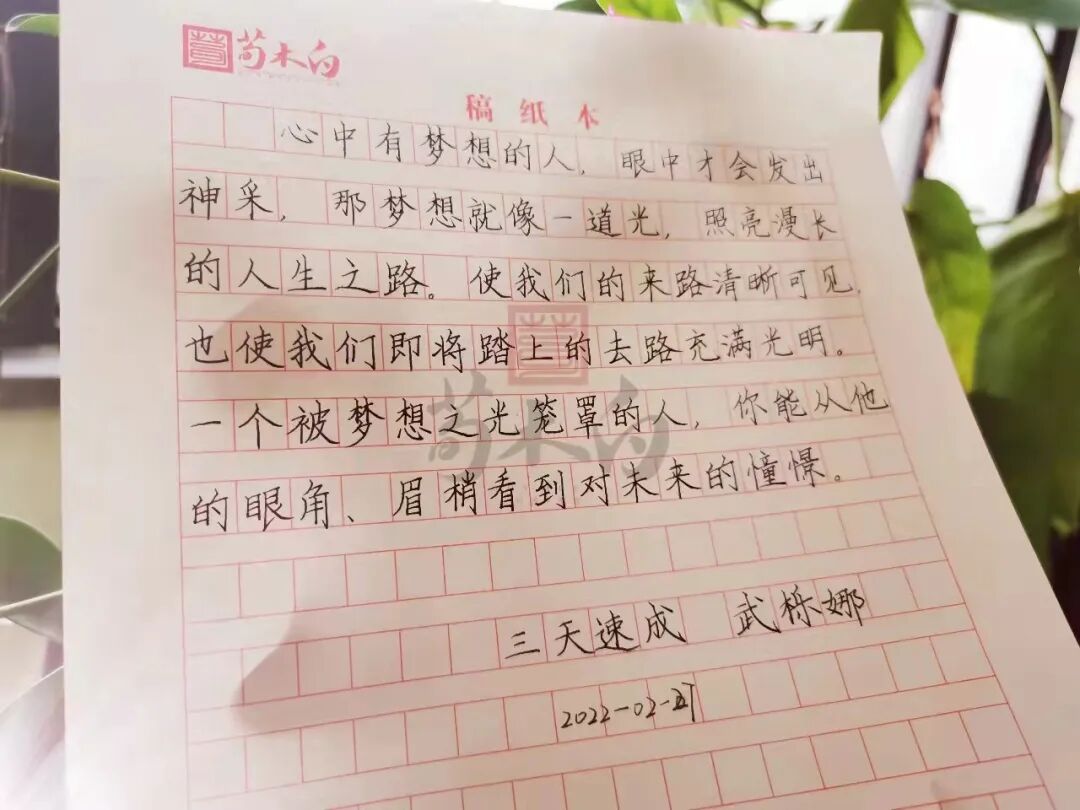 苟木白
稿纸本
心中有梦想的人,眼中才会发出
神采,那梦想就像一道光,照亮漫长
的人生之路。使我们的来路清晰可见,
也使我们即将踏上的去路充满光明。
一个被梦想之光笼罩的人,你能从他
的眼角、眉梢看到对未来的憧憬。
苟木白
三天速成 武栎娜
2022-02-